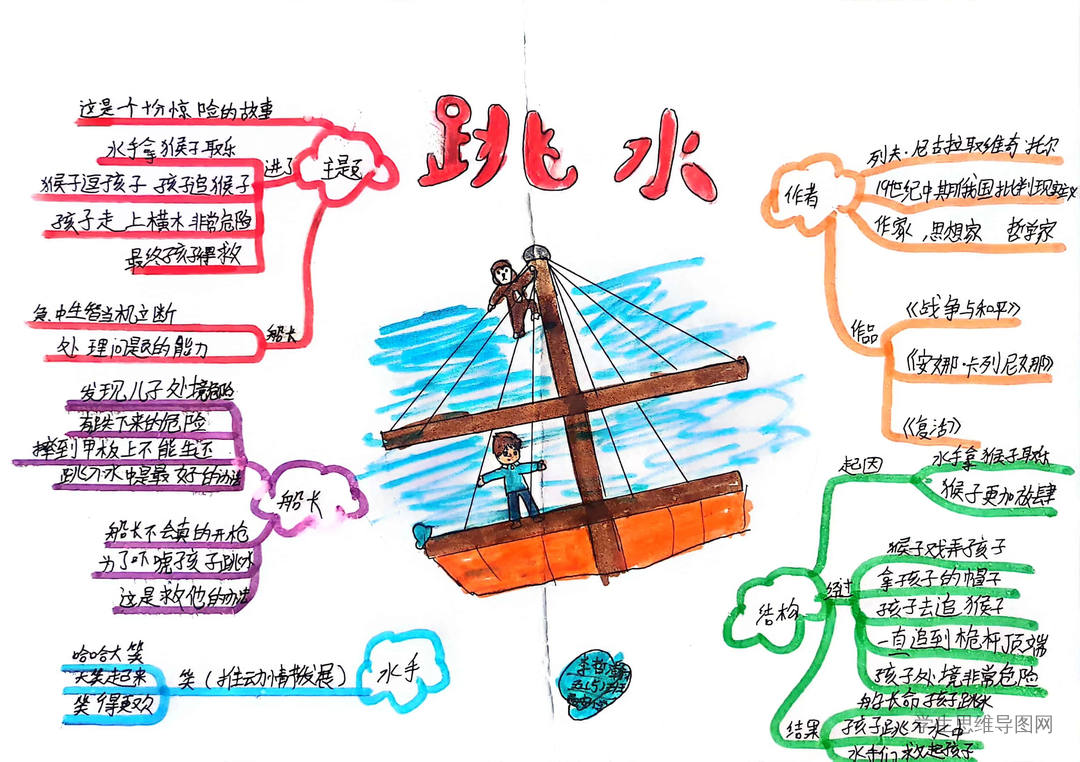 跳水
主题
这是一个十份惊险的故事
讲了
水手拿猴子取乐
猴子逗孩子 孩子追猴子
孩子走上横木非常危险
最终孩子得救
船长
急中生智当机立断
处理问题的能力
船长
发现儿子处境危险
下来的危险
摔到甲板上不能生还
跳水中是最好的办法
船长不会真的开枪
为了吓唬孩子跳水
这是救他的办法
水手
笑(推动情节发展)
哈哈大笑
大笑起来
笑得更欢
作者
列夫·尼古拉耶维奇·托尔
19世纪中期俄国批判现实主义
作家、思想家 哲学家
作品
《战争与和平》
《安娜·卡列尼娜》
《复活》
结构
起因
水手拿猴子取乐
猴子更加放肆
经过
猴子戏弄孩子
拿孩子的帽子
孩子去追猴子
一直追到桅杆顶端
孩子处境非常危险
结果
船长命孩子跳水
孩子跳水中
水手们救起孩子
五(5)班
学生思维导图网